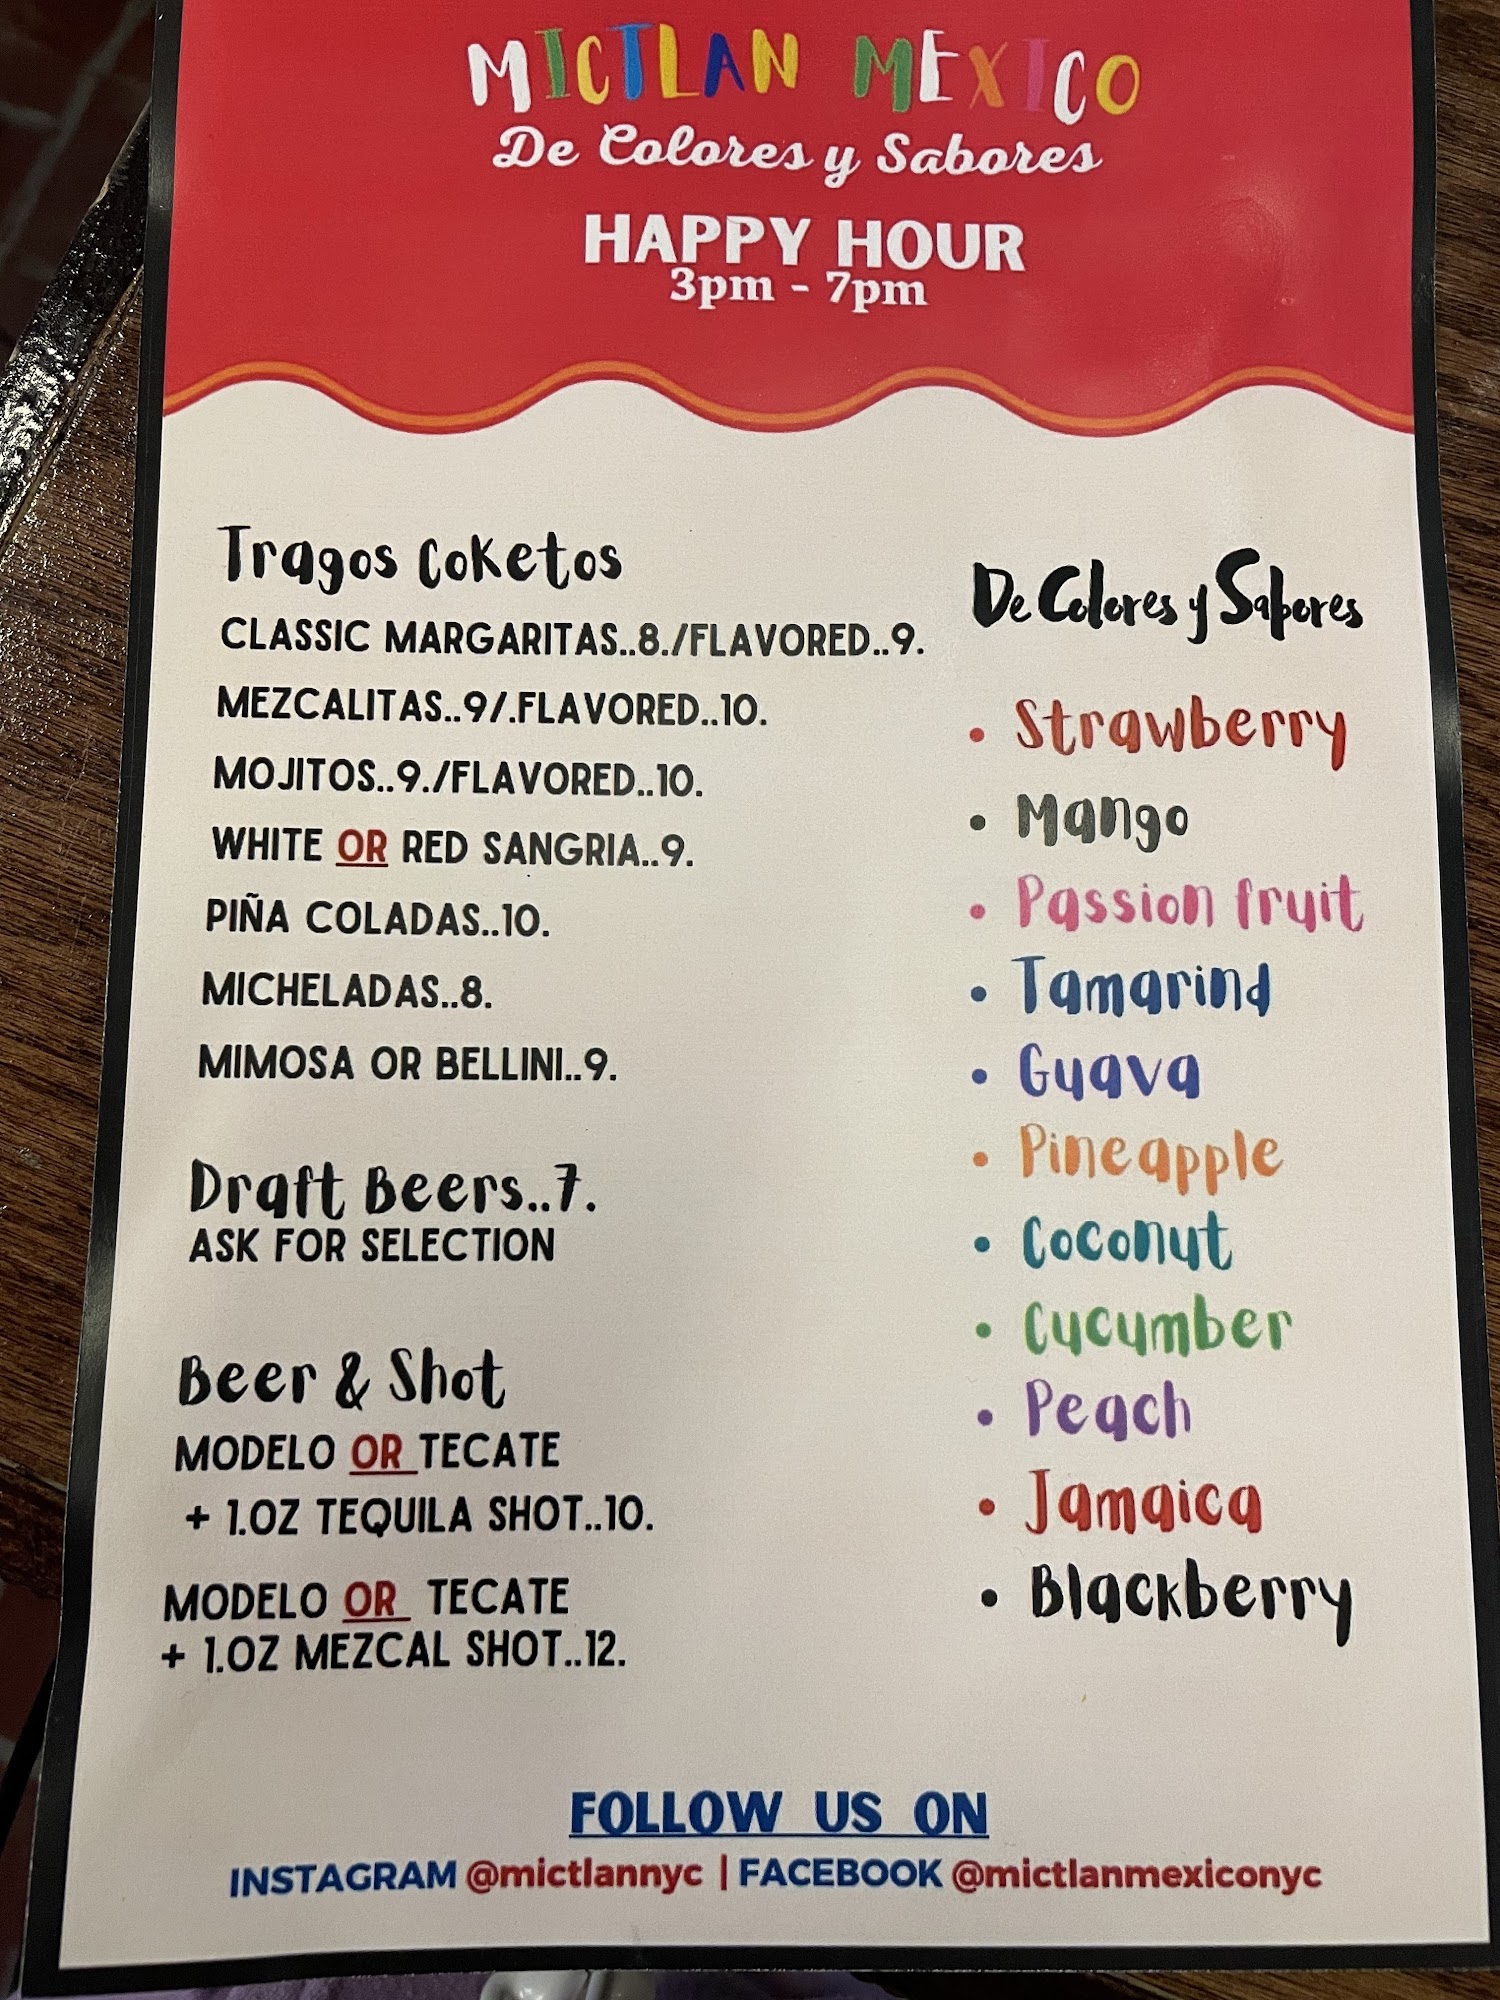 MICTLAN MEXICO
De Colores y Sabores
HAPPY HOUR
3pm - 7pm
Tragos Coketos
CLASSIC MARGARITAS..8./FLAVORED..9.
MEZCALITAS..9/.FLAVORED..10.
MOJITOS..9./FLAVORED..10.
WHITE OR RED SANGRIA..9.
PIÑA COLADAS..10.
MICHELADAS..8.
MIMOSA OR BELLINI..9.
Draft Beers..7.
ASK FOR SELECTION
Beer & Shot
MODELO OR TECATE
+ 1.OZ TEQUILA SHOT..10.
MODELO OR TECATE
+ 1.OZ MEZCAL SHOT..12.
De Colores y Sabores
• Strawberry
• Mango
• Passion fruit
• Tamarind
• Guava
• Pineapple
• Coconut
• Cucumber
• Peach
• Jamaica
• Blackberry
FOLLOW US ON
INSTAGRAM @mictlannyc | FACEBOOK @mictlanmexiconyc